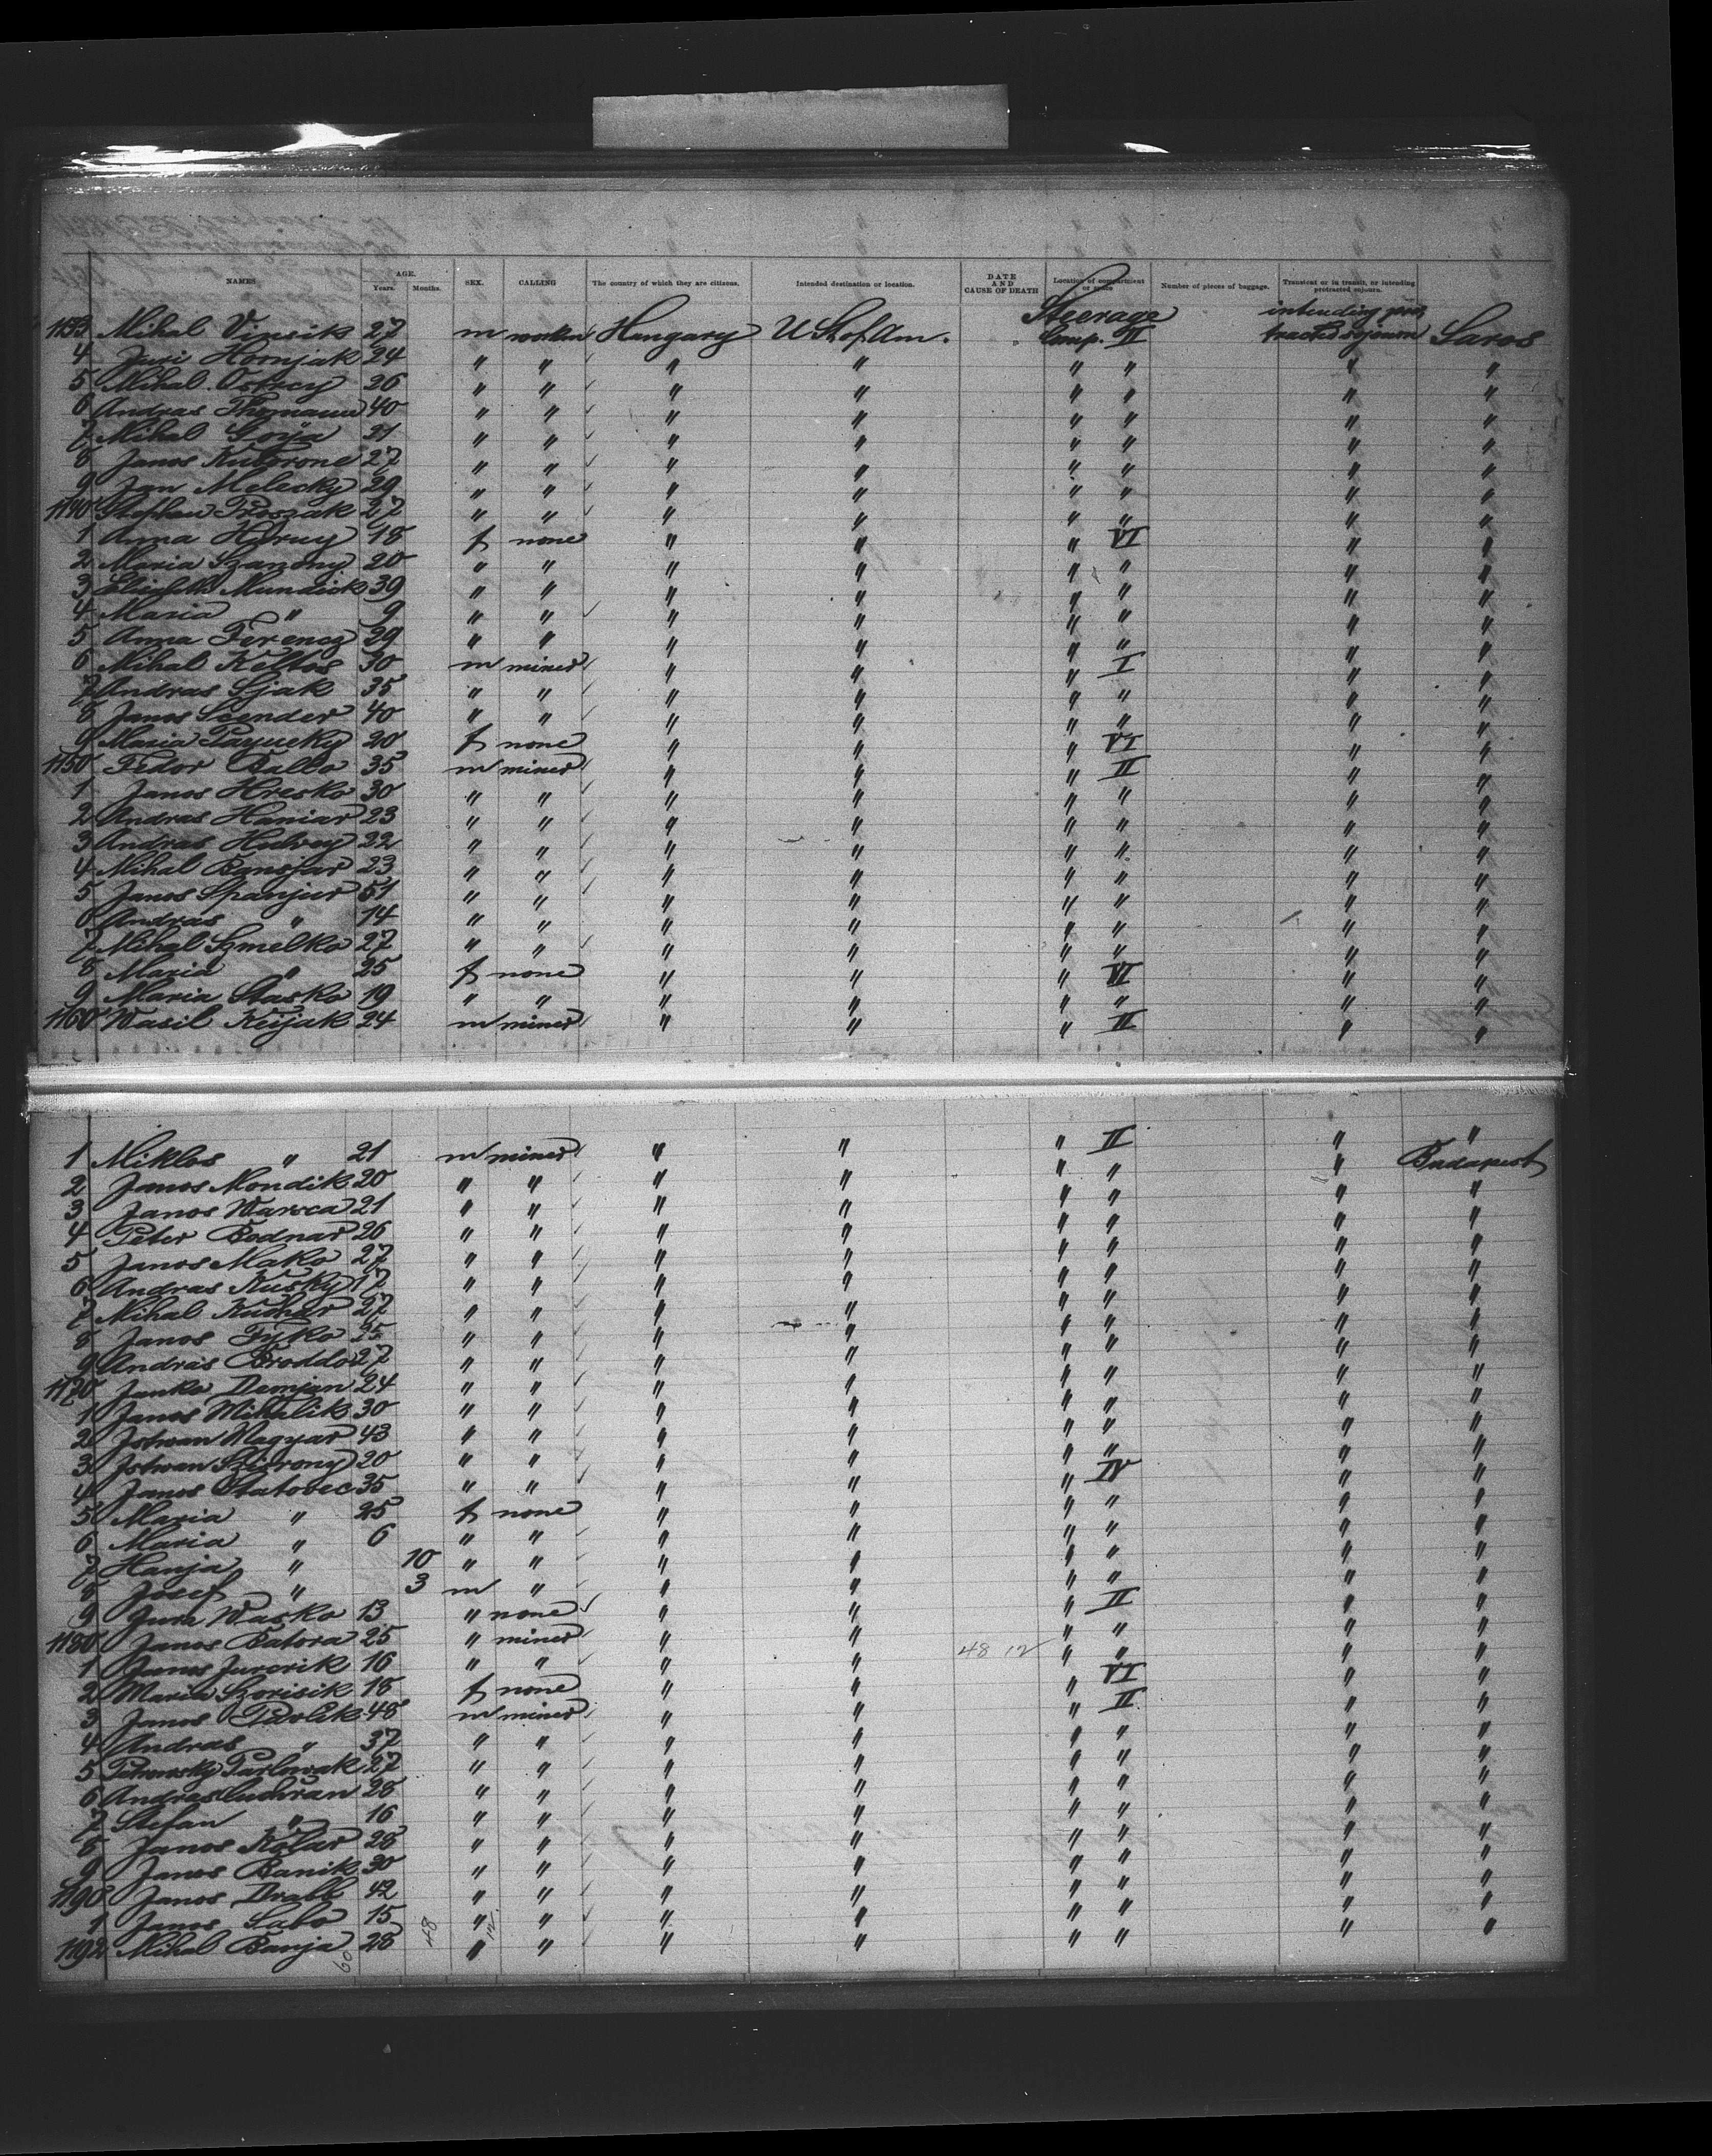 NAMES AGE. Years. Months. SEX. CALLING The country of which they are citizens. Intended destination or location. DATE AND CAUSE OF DEATH Location of compartment or space Number of pieces of baggage. Transient or in transit, or intending protracted sojourn.
1133 Mihal Vinsik 27 m worker Hungary U St of Am. Steerage Comp. II intending protracted sojourn Saros
4 Juri Hornjak 24 " " " " " " " "
5 Mihal Ostrey 26 " " " " " " " "
6 Andras Thomann 40 " " " " " " " "
7 Mihal Soija 21 " " " " " " " "
8 Janos 27 " " " " " " " "
9 Jan Melecky 29 " " " " " " " "
1140 Stephan Proszak 27 " " " " " " " "
1 Anna Horny 18 f none " " " VI " "
2 Maria Szanony 20 " " " " " " " "
3 Elisabeth Mundick 39 " " " " " " " "
4 Maria " 9 " " " " " " " "
5 Anna Ferencz 29 " " " " " " " "
6 Mihal Keltos 30 m miner " " " I " "
7 Andras Sjak 35 " " " " " " " "
8 Janos Scender 40 " " " " " " " "
9 Maria 20 f none " " " VI " "
1150 Fedor Ballo 35 m miner " " " II " "
1 Janos Hresko 30 " " " " " " " "
2 Andras Haniar 23 " " " " " " " "
3 Andras Hudvey 22 " " " " " " " "
4 Mihal Bansjar 23 " " " " " " " "
5 Janos Spanjur 51 " " " " " " " "
6 Andras " 14 " " " " " " " "
7 Mihal Szmelko 27 " " " " " " " "
8 Maria " 25 f none " " " VI " "
9 Maria Stasko 19 " " " " " " " "
1160 Wasil Keijak 24 m miner " " " II " "
1 Miklos " 21 m miner " " " II " "
2 Janos Mondik 20 " " " " " " " Budapest
3 Janos Warsca 21 " " " " " " " "
4 Peter Bodnar 26 " " " " " " " "
5 Janos Mako 27 " " " " " " " "
6 Andras Kusky 17 " " " " " " " "
7 Mihal Kuchar 27 " " " " " " " "
8 Janos Fyko 25 " " " " " " " "
9 Andras Broddo 27 " " " " " " " "
1170 Janko Demjan 24 " " " " " " " "
1 Janos Mihalik 30 " " " " " " " "
2 Istwan Magyar 43 " " " " " " " "
3 Istwan 20 " " " " " " " "
4 Janos Statovec 35 " " " " " IV " "
5 Maria " 25 f none " " " " " "
6 Maria " 6 " " " " " " " "
7 Hanja " 10 " " " " " " " "
8 Josef " 3 m " " " " " " "
9 Jura Wasko 13 " none " " " II " "
1180 Janos Batora 25 " miner " " " " " "
1 Janos Jurcrik 16 " " " " 48 12 " " " "
2 Maria Szorisik 18 f none " " " VI " "
3 Janos Pavlik 48 m miner " " " II " "
4 Andras " 37 " " " " " " " "
5 Petrowsky Parlowak 27 " " " " " " " "
6 Andras 28 " " " " " " " "
7 Stefan " 16 " " " " " " " "
8 Janos Kolar 28 " " " " " " " "
9 Janos Banik 30 " " " " " " " "
1190 Janos Drabb 42 " " " " " " " "
1 Janos Sabo 15 " " " " " " " "
1192 Mihal Banja 28 " " " " " " " "
60 48 12